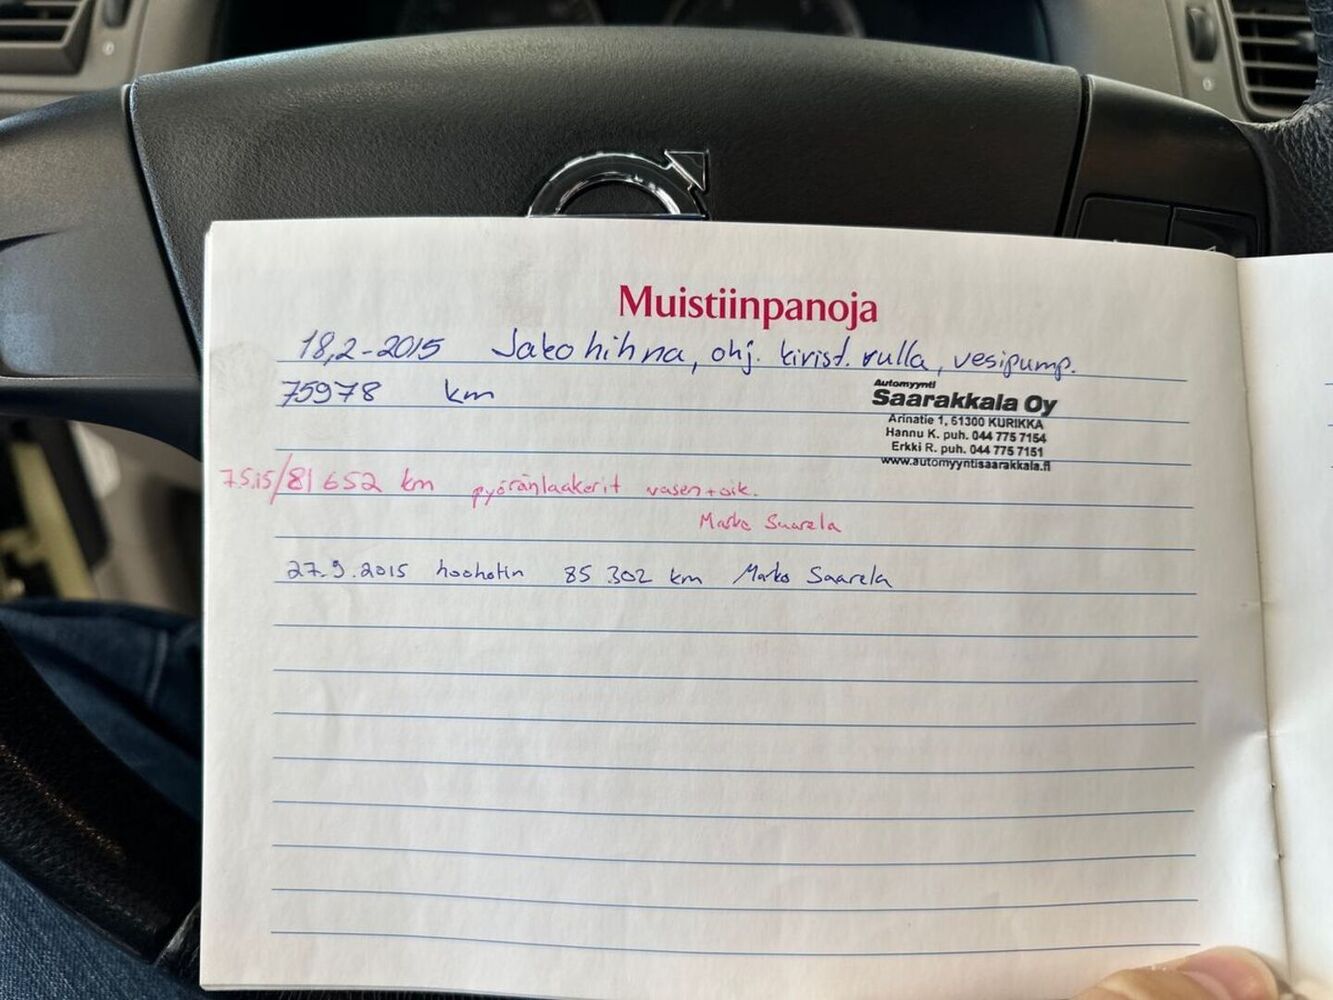 Muistiinpanoja
18,2-2015 Jakohihna, ohj. kirist. rulla, vesipump.
75978 km
Automyynti
Saarakkala Oy
Arinatie 1, 61300 KURIKKA
Hannu K. puh. 044 775 7154
Erkki R. puh. 044 775 7151
www.automyyntisaarakkala.fi
7.5.15/81 652 km pyöränlaakerit vasen+oik.
Marko Saarela
27.9.2015 85 302 km Marko Saarela